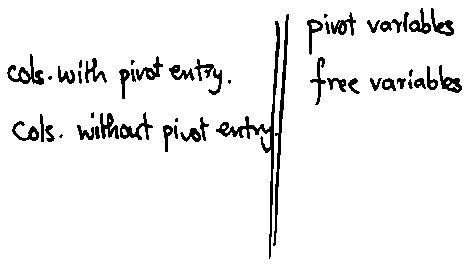 cols. with pivot entry.
cols. without pivot entry
pivot variables
free variables